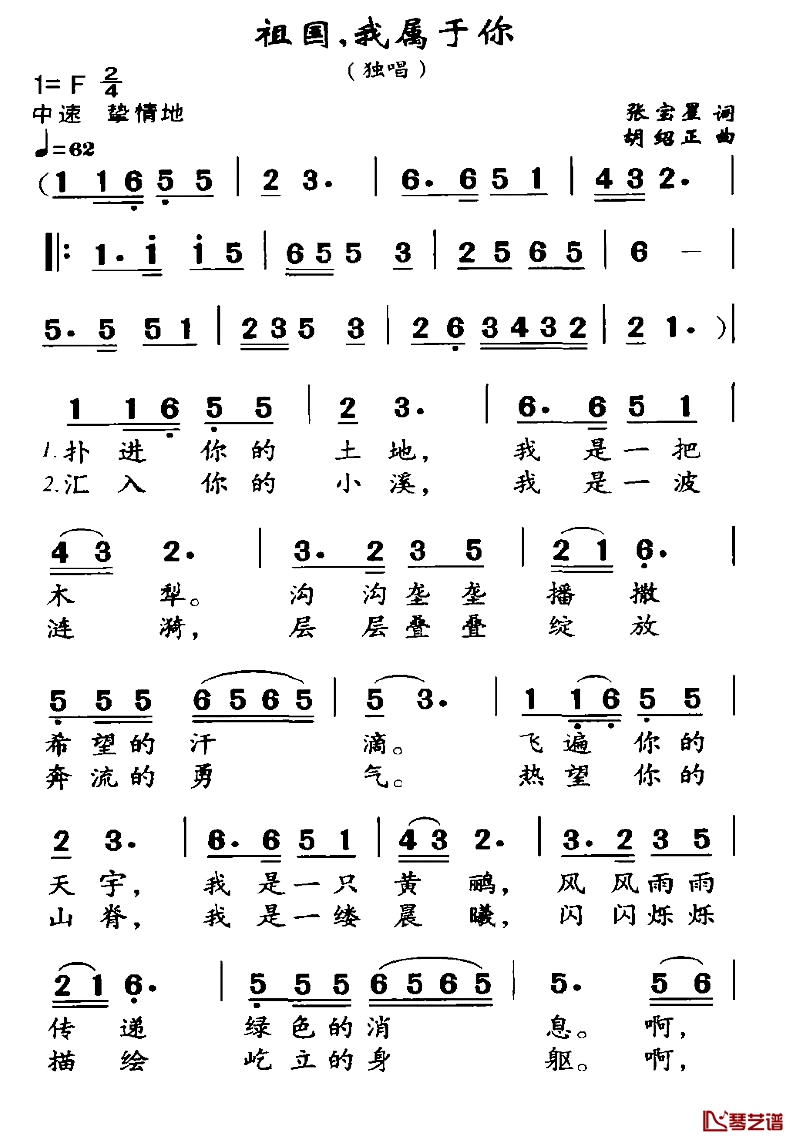 祖国,我属于你
(独唱)
1=F 2/4
中速 挚情地
张宝星 词
胡绍正 曲
♩=62
(1 1 6 5 5 | 2 3· | 6· 6 5 1 | 4 3 2· |
‖: 1· i i 5 | 6 5 5 3 | 2 5 6 5 | 6 – |
5· 5 5 1 | 2 3 5 3 | 2 6 3 4 3 2 | 2 1· )|
1 1 6 5 5 | 2 3· | 6· 6 5 1 |
1.扑进你的土地, 我是一把
2.汇入你的小溪, 我是一波
4 3 2· | 3· 2 3 5 | 2 1 6· |
木犁。沟沟垄垄播撒
涟漪,层层叠叠绽放
5 5 5 6 5 6 5 | 5 3· | 1 1 6 5 5 |
希望的汗滴。飞遍你的
奔流的勇气。热望你的
2 3· | 6· 6 5 1 | 4 3 2· | 3· 2 3 5 |
天宇,我是一只黄鹂,风风雨雨
山脊,我是一缕晨曦,闪闪烁烁
2 1 6· | 5 5 5 6 5 6 5 | 5· 5 6 |
传递绿色的消息。啊,
描绘屹立的身躯。啊,
琴艺谱